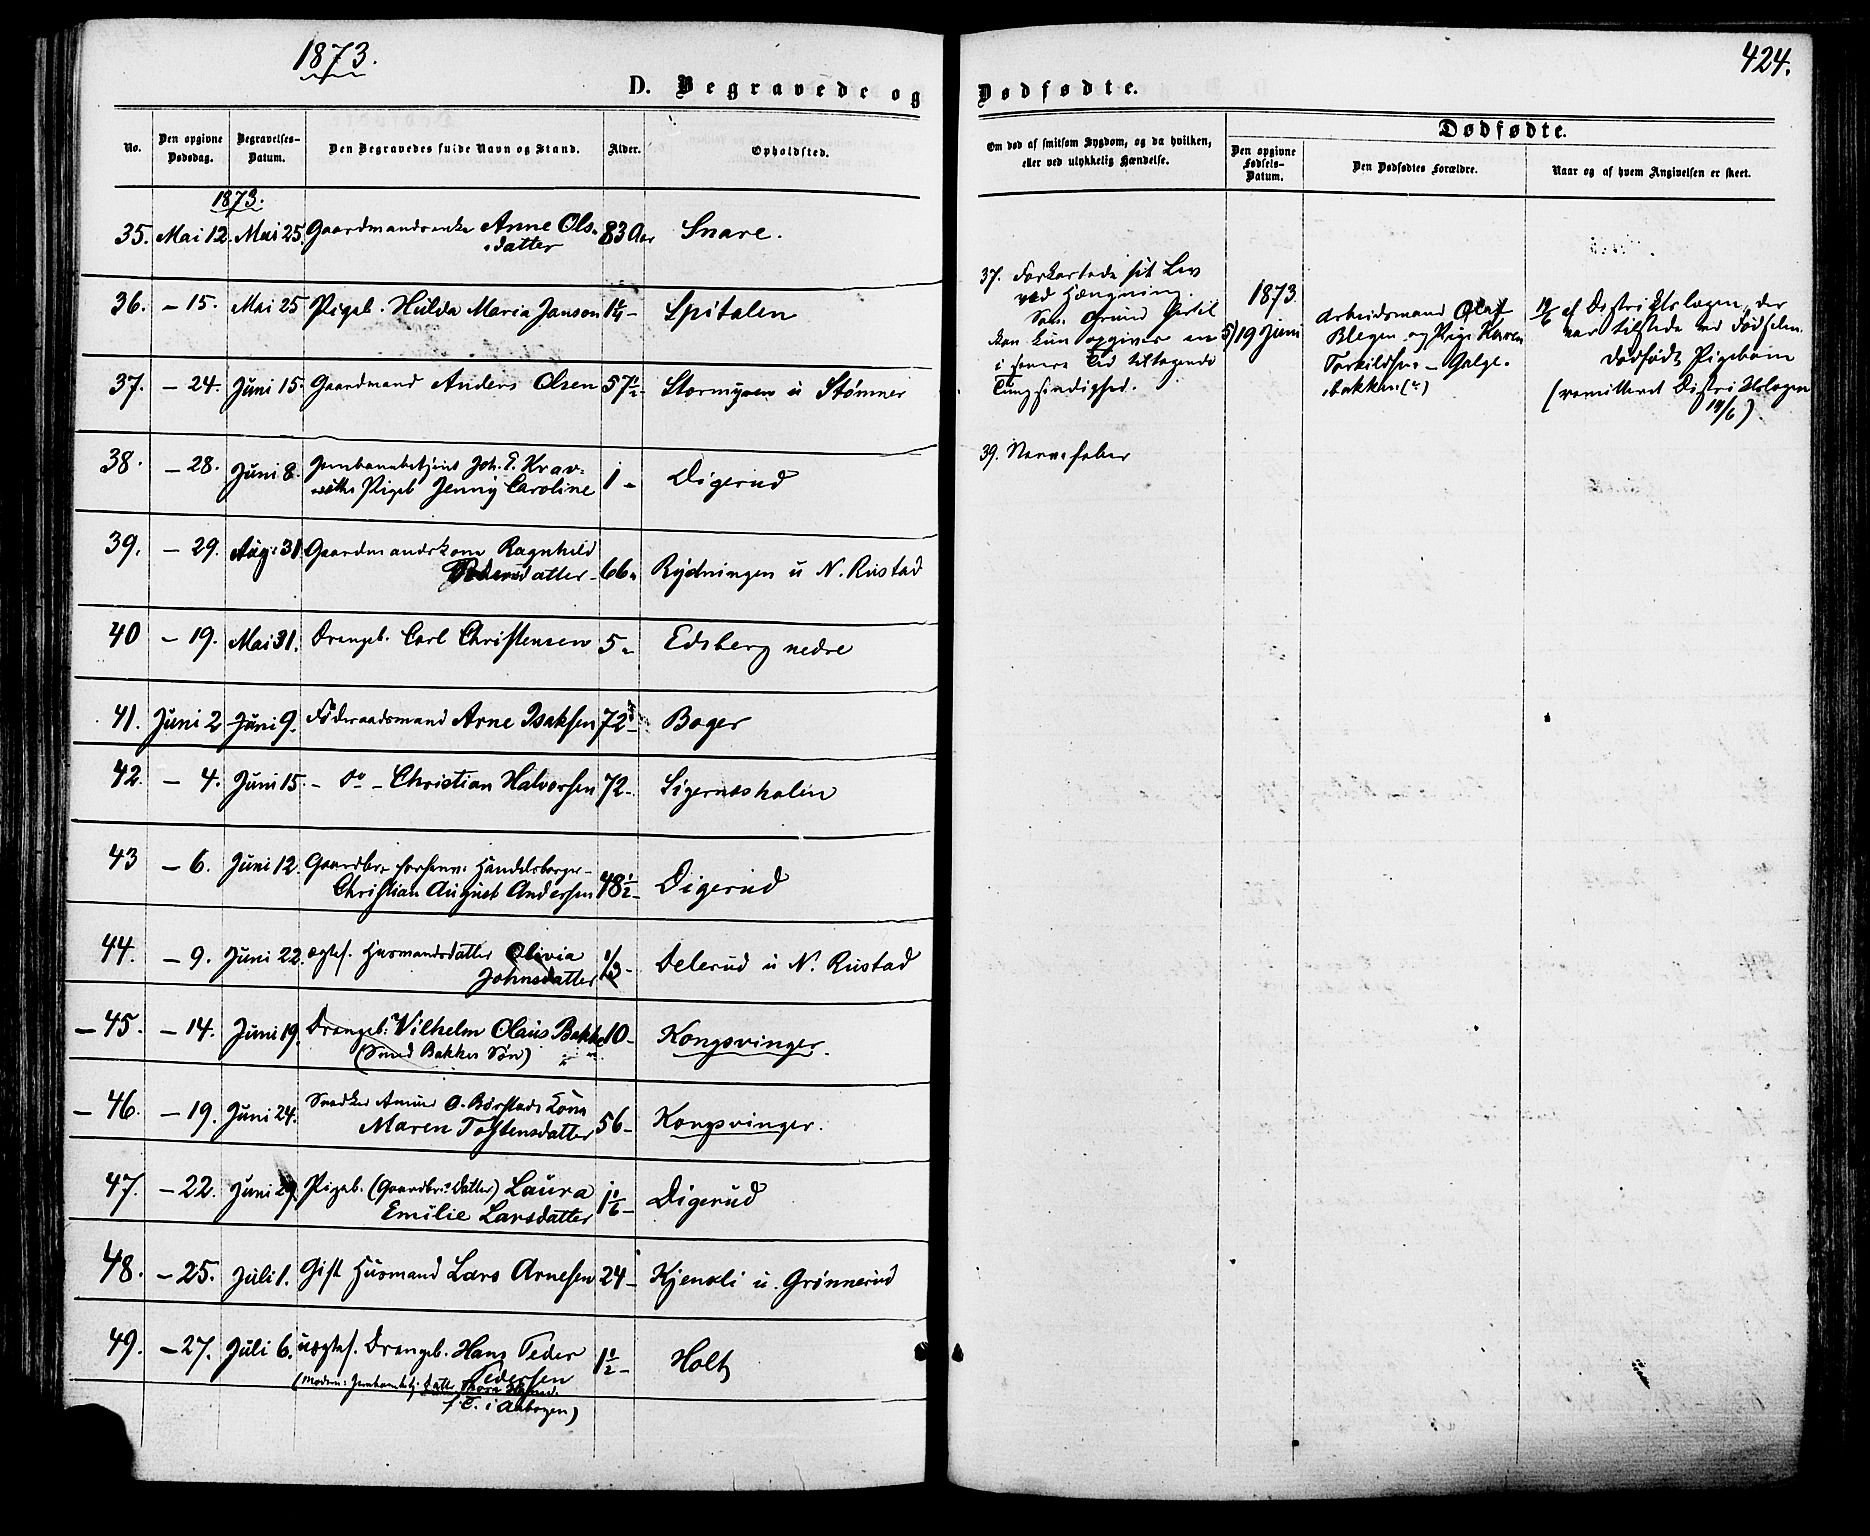 1873.
424.
D. Begravede og Dødfødte.
No.
Den opgivne Dødsdag.
Begravelses-Datum.
Den Begravedes fulde Navn og Stand.
Alder.
Opholdsted.
Om død af smitsom Sygdom, og da hvilken,
eller ved ulykkelig Hændelse.
Dødfødte.
Den opgivne Fødsels-Datum.
Den Dødfødtes Forældre.
Naar og af hvem Angivelsen er skeet.
1873.
35. Mai 12. Mai 25. Gaardmandsenke Anne Ols-
datter 83 Aar Snare.
36. – 15. Mai 25 Pigeb. Hulda Maria Janson 1¼ – Spitalen
37. – 24. Juni 15. Gaardmand Anders Olsen 57½ – Stormyren u Stømner
38. – 28. Juni 8. Jernbanebetjent Joh. E. Krav-
Pigeb Jenny Caroline 1 – Digerud
39. – 29. Aug: 31. Gaardmandskone Ragnhild
Pedersdatter – 66 " Rydningen u N. Rustad
40 – 19. Mai 31. Drengeb. Carl Christensen 5 " Edsberg nedre
41. Juni 2 Juni 9. Føderaadsmand Arne Isaksen 72 – Boger
42. – 4. Juni 15. – do – Christian Halvorsen 72 – Sigernæsholen
43 – 6. Juni 12. Gaardbr. forhenv: Handelsborger
Christian August Andersen 48½ – Digerud
44. – 9. Juni 22. ægtef. Husmandsdatter Olivia
Johnsdatter 1/3 – Delerud u N. Rustad
– 45. – 14. Juni 19. Drengeb: Vilhelm Olaus Bakke 10 – Kongsvinger.
(Smed Bakkes Søn)
– 46. – 19. Juni 24. Snedker Amund O. Børstads Kone
Maren Tostensdatter 56 – Kongsvinger.
47. – 22. Juni 29. Pigeb. (Gaardbr:s Datter) Laura
Emilie Larsdatter 1 1/6 – Digerud
48. – 25. Juli 1. Gift Husmand Lars Arnesen 24 – Kjensli u. Grønnerud
49. – 27. Juli 6. uægtef. Drengeb. Hans Peder
Pedersen 1½ – Holt
(Moderen: Datter Thora
f. E. i Aabogen)
37. Forkortede sit Liv
ved Hængning.
Som Grund hertil
kan kun opgives en
i senere Tid tiltagende
Tungsindighed.
39. Nervefeber
1873.
5) 19 Juni
Arbeidsmand Olaf
Blegen og Pige Karen
Torkildsen – Galge-
bakken
af Distriktslægen, der
var tilstede ved Fødselen.
Dødfødt Pigebarn
(remitteret Distriktslægen
19/6).